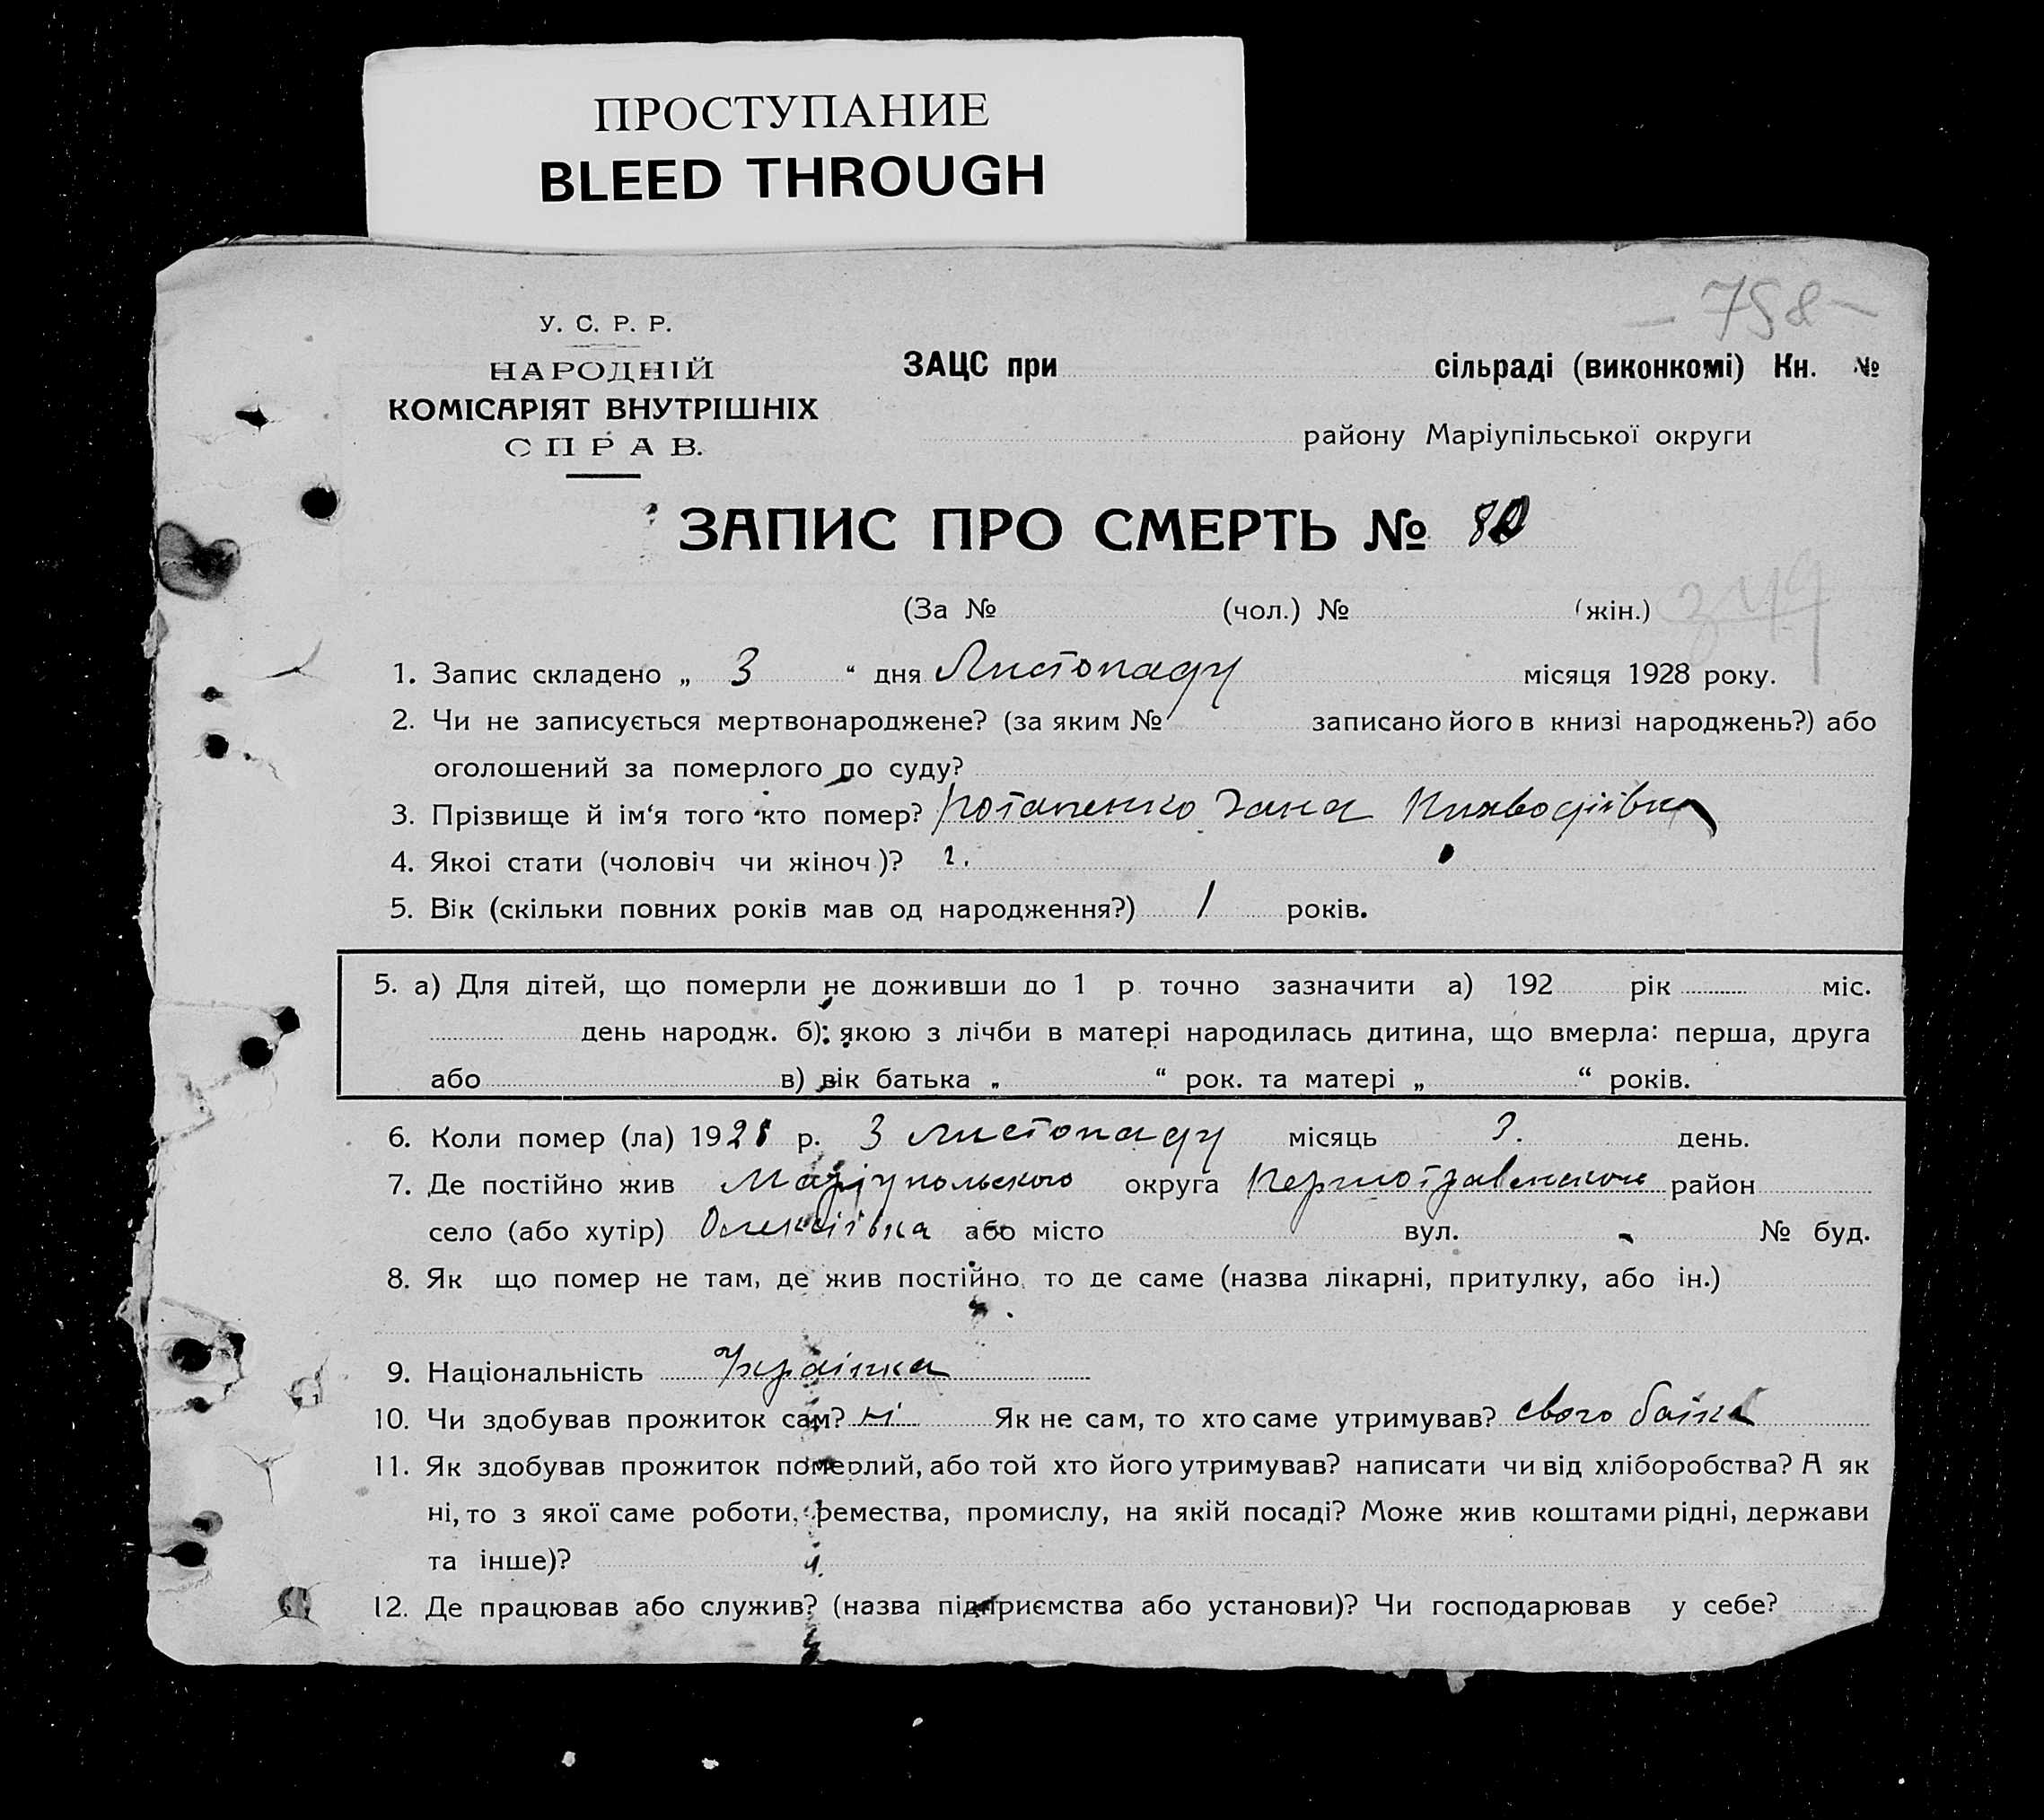 ПРОСТУПАНИЕ
BLEED THROUGH
- 758 -
У. С. Р. Р.
НАРОДНІЙ
КОМІСАРІЯТ ВНУТРІШНІХ
СПРАВ.
ЗАЦС при сільраді (виконкомі) Кн. №
району Маріупільської округи
ЗАПИС ПРО СМЕРТЬ №
(За № (чол.) № (жін.)
1. Запис складено „ 3 “ дня Листопаду місяця 1928 року.
2. Чи не записується мертвонароджене? (за яким № записано його в книзі народжень?) або
оголошений за померлого по суду?
3. Прізвище й ім‘я того кто помер? Потапенко
4. Якоі стати (чоловіч чи жіноч)?
5. Вік (скільки повних років мав од народження?) 1 років.
5. а) Для дітей, що померли не доживши до 1 р. точно зазначити а) 192 рік міс.
день народж. б) якою з лічби в матері народилась дитина, що вмерла: перша, друга
або в) вік батька „ “ рок. та матері „ “ років.
6. Коли помер (ла) 1928 р. 3 листопаду місяць 3. день.
7. Де постійно жив Маріупольского округа район
село (або хутір) Олексіівка або місто вул. № буд.
8. Як що помер не там, де жив постійно то де саме (назва лікарні, притулку, або ін.)
9. Національність Украінка
10. Чи здобував прожиток сам? ні Як не сам, то хто саме утримував? свого
11. Як здобував прожиток померлий, або той хто його утримував? написати чи від хліборобства? А як
ні, то з якої саме роботи, ремества, промислу, на якій посаді? Може жив коштами рідні, держави
та інше)?
12. Де працював або служив? (назва підприємства або установи)? Чи господарював у себе?